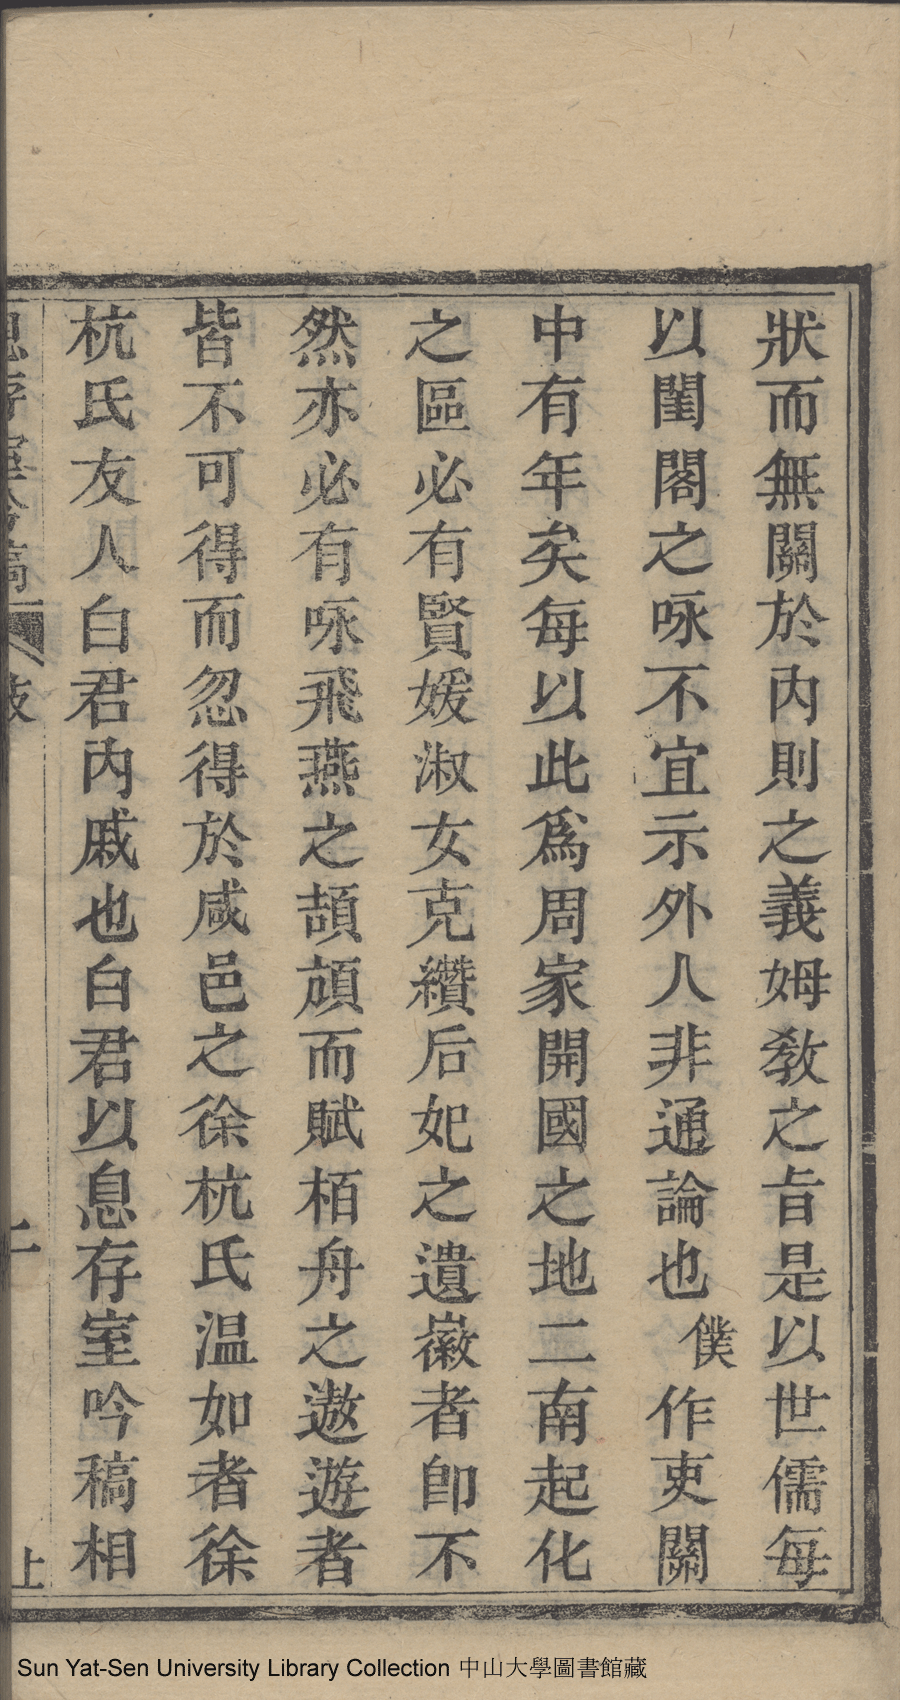 狀而無關於內則之義姆教之旨是以世儒每
以閨閣之咏不宜示外人非通論也僕作吏關
中有年矣每以此爲周家開國之地二南起化
之區必有賢媛淑女克纘后妃之遺徽者卽不
然亦必有咏飛燕之頡頏而賦栢舟之遨遊者
皆不可得而忽得於咸邑之徐杭氏温如者徐
杭氏友人白君內戚也白君以息存室吟稿相
息存室吟稿
跋
二
上
Sun Yat-Sen University Library Collection 中山大學圖書館藏